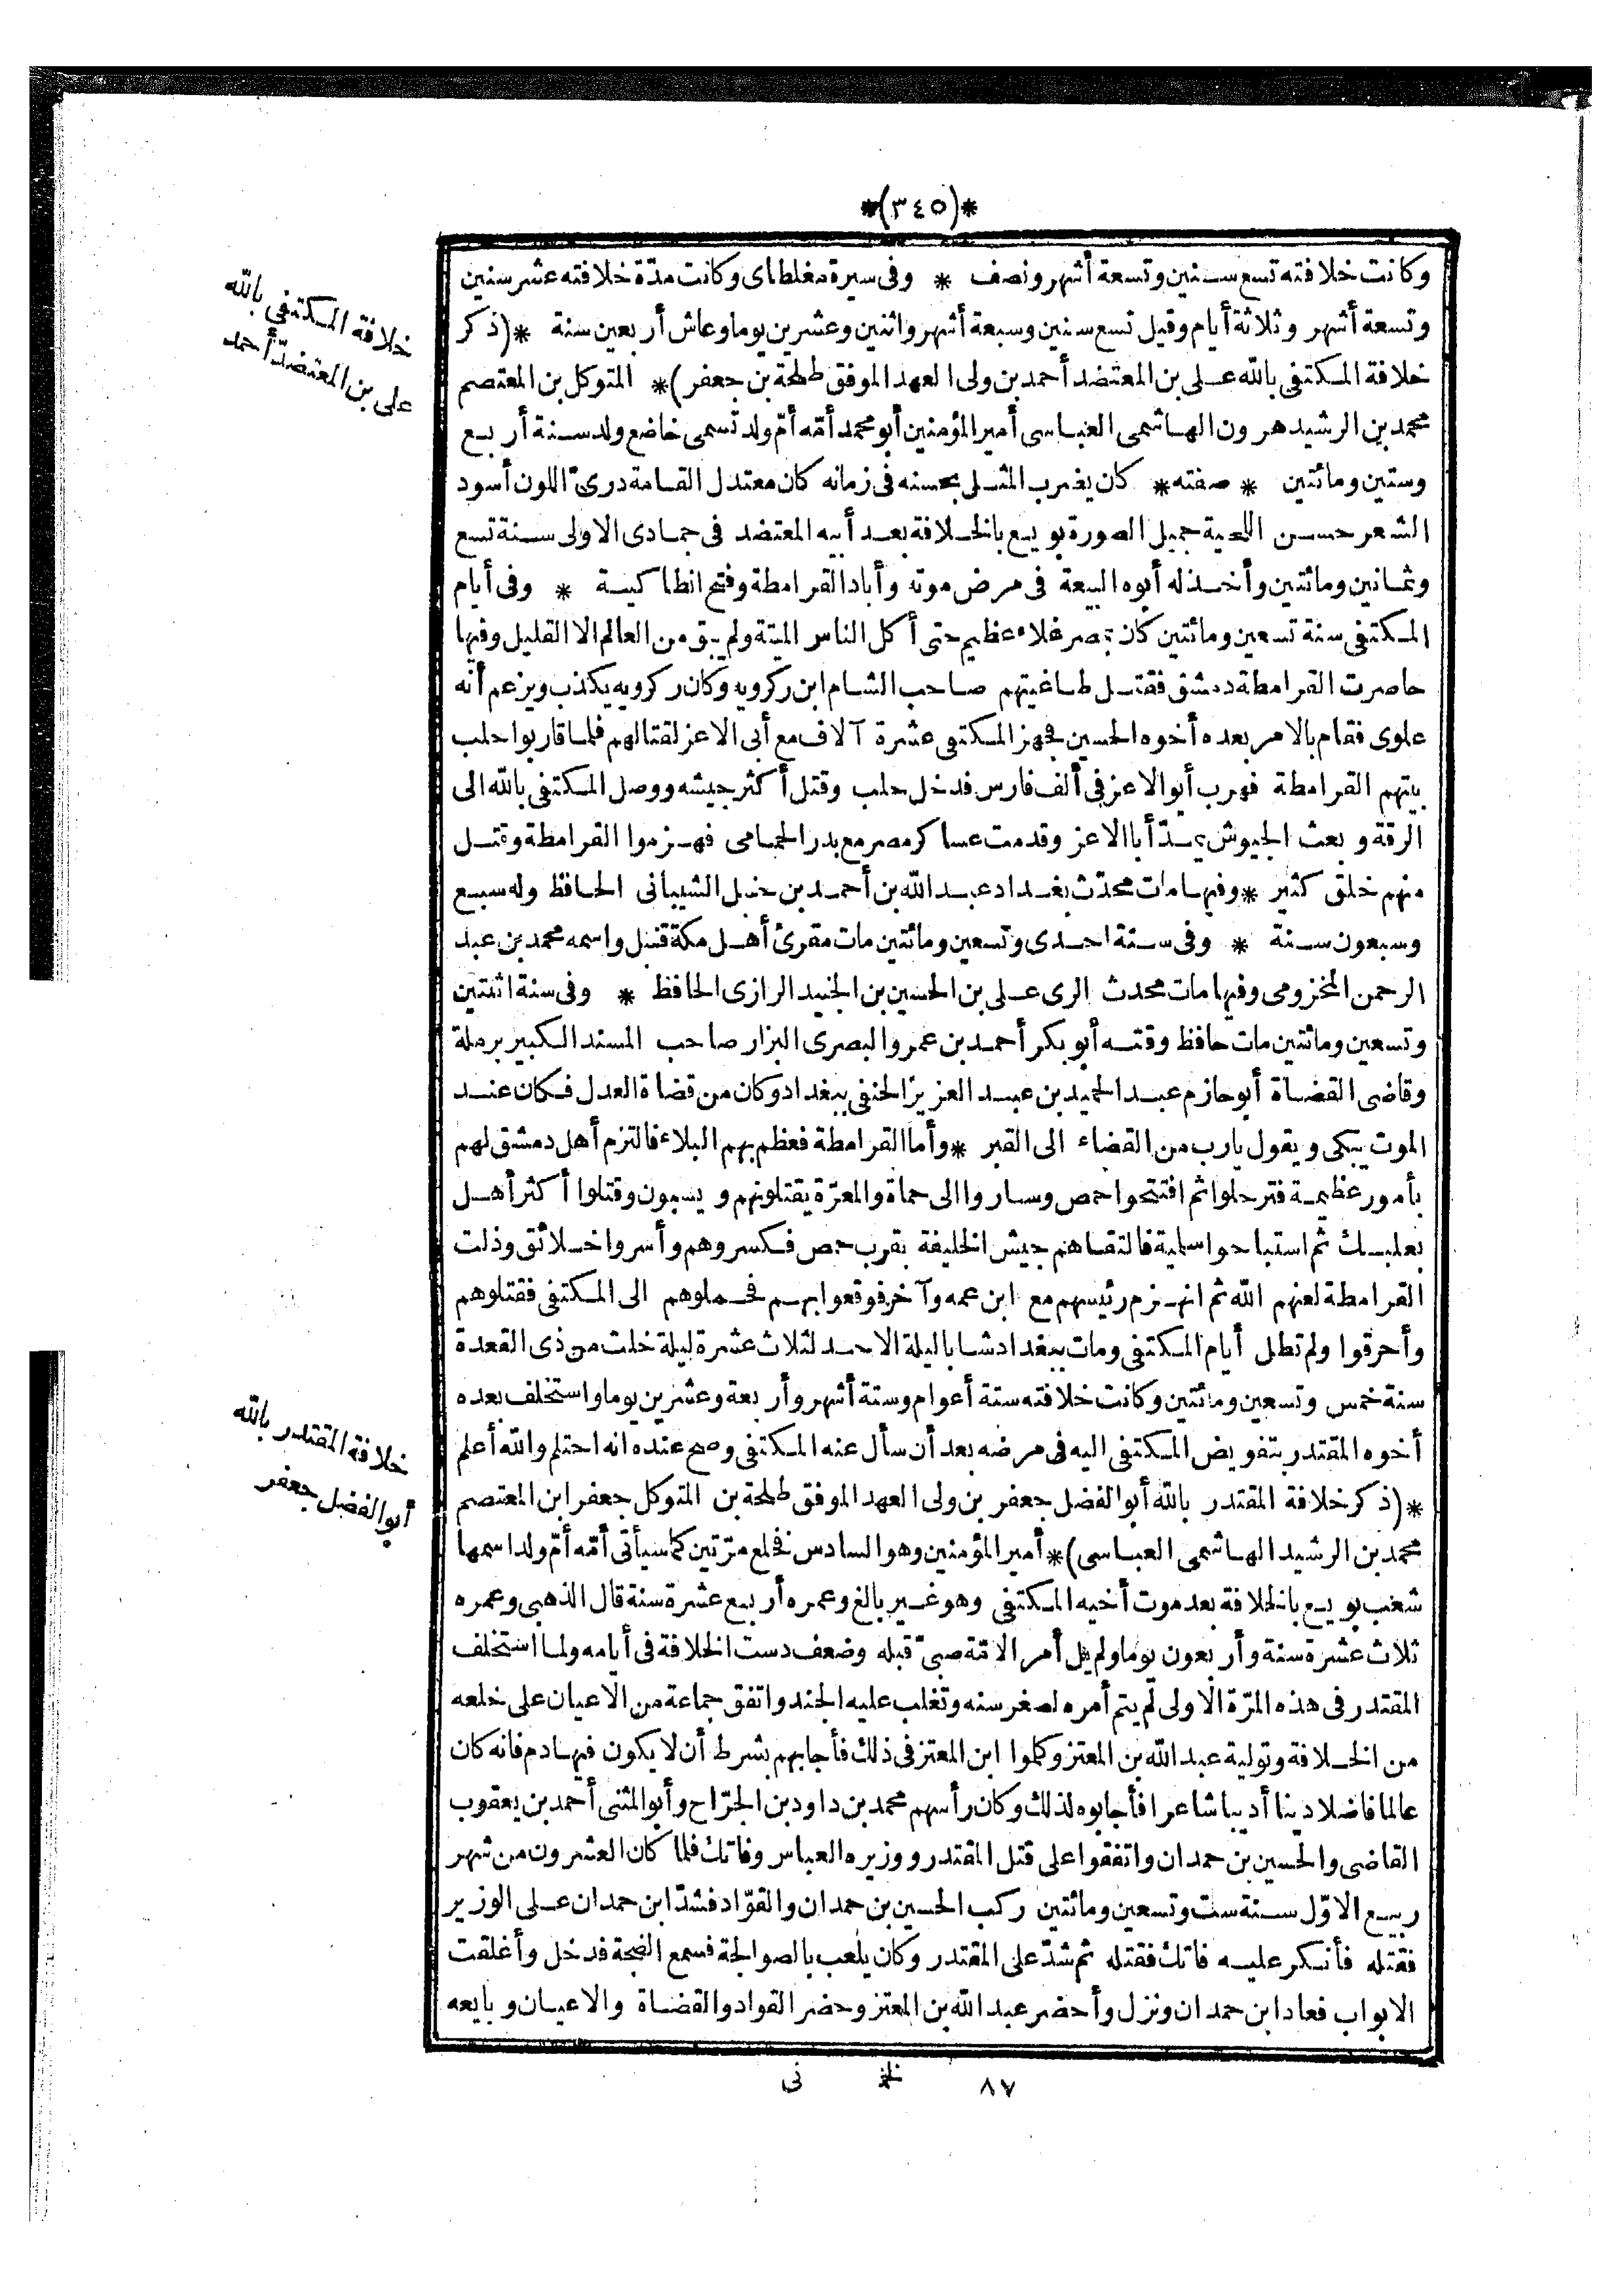 *(٣٤٥)*
وكانت خلافته تسع سنين وتسعة أشهر ونصف * وفى سيرة مغلطاى وكانت مدّة خلافته عشر سنين
وتسعة أشهر وثلاثة أيام وقيل تسع سنين وسبعة أشهر واثنين وعشرين يوما وعاش أربعين سنة *(ذكر
خلافة المكتفى بالله على بن المعتضد أحمد بن ولى العهد الموفق طلحة بن جعفر)* المتوكل بن المعتصم
محمد بن الرشيد هرون الهاشمى العباسى أمير المؤمنين أبو محمد أمّه أمّ ولد تسمى خاضع ولد سنة أربع
وستين ومائتين * صفته* كان يضرب المثل بحسنه فى زمانه كان معتدل القامة درىّ اللون أسود
الشعر حسن اللحية جميل الصورة بويع بالخلافة بعد أبيه المعتضد فى جمادى الاولى سنة تسع
وثمانين ومائتين وأخذ له أبوه البيعة فى مرض موته وأباد القرامطة وفتح انطاكية * وفى أيام
المكتفى سنة تسعين ومائتين كان بمصر غلاء عظيم حتى أكل الناس الميتة ولم يبق من العالم الا القليل وفيها
حاصرت القرامطة دمشق فقتل طاغيتهم صاحب الشام ابن ركرويه وكان ركرويه يكذب ويزعم أنه
علوى فقام بالامر بعده أخوه الحسين فجهز المكتفى عشرة آلاف مع أبى الاعز لقتالهم فلما قاربوا حلب
بيتهم القرامطة فهرب أبو الاعز فى ألف فارس فدخل حلب وقتل أكثر جيشه ووصل المكتفى بالله الى
الرقة وبعث الجيوش يمدّ أبا الاعز وقدمت عساكر مصر مع بدر الحمامى فهزموا القرامطة وقتل
منهم خلق كثير * وفيها مات محدّث بغداد عبد الله بن أحمد بن حنبل الشيبانى الحافظ وله سبع
وسبعون سنة * وفى سنة احدى وتسعين ومائتين مات مقرئ أهل مكة قنبل واسمه محمد بن عبد
الرحمن المخزومى وفيها مات محدث الرى على بن الحسين بن الجنيد الرازى الحافظ * وفى سنة اثنتين
وتسعين ومائتين مات حافظ وقته أبو بكر أحمد بن عمرو البصرى البزار صاحب المسند الكبير برملة
وقاضى القضاة أبو حازم عبد الحميد بن عبد العزيز الحنفى ببغداد وكان من قضاة العدل فكان عند
الموت يبكى ويقول يارب من القضاء الى القبر * وأما القرامطة فعظم بهم البلاء فالتزم أهل دمشق لهم
بأمور عظيمة فترحلوا ثم افتتحوا حمص وساروا الى حماة والمعرّة يقتلونهم ويسبون وقتلوا أكثر أهل
بعلبك ثم استباحوا سلمية فالتقاهم جيش الخليفة بقرب حمص فكسروهم وأسروا خلائق وذلت
القرامطة لعنهم الله ثم انهزم رئيسهم مع ابن عمه وآخر فوقعوا بهم فحملوهم الى المكتفى فقتلوهم
وأحرقوا ولم تطل أيام المكتفى ومات ببغداد شابا ليلة الاحد لثلاث عشرة ليلة خلت من ذى القعدة
سنة خمس وتسعين ومائتين وكانت خلافته ستة أعوام وستة أشهر وأربعة وعشرين يوما واستخلف بعده
أخوه المقتدر بتفويض المكتفى اليه فى مرضه بعد أن سأل عنه المكتفى وصح عنده انه احتلم والله أعلم
*(ذكر خلافة المقتدر بالله أبو الفضل جعفر بن ولى العهد الموفق طلحة بن المتوكل جعفر ابن المعتصم
محمد بن الرشيد الهاشمى العباسى)* أمير المؤمنين وهو السادس فخلع مرّتين كما سيأتى أمّه أمّ ولد اسمها
شغب بويع بالخلافة بعد موت أخيه المكتفى وهو غير بالغ وعمره أربع عشرة سنة قال الذهبى وعمره
ثلاث عشرة سنة وأربعون يوما ولم يل أمر الامّة صبىّ قبله وضعف دست الخلافة فى أيامه ولما استخلف
المقتدر فى هذه المرّة الاولى لم يتم أمره لصغر سنه وتغلب عليه الجند واتفق جماعة من الاعيان على خلعه
من الخلافة وتولية عبد الله بن المعتز وكلموا ابن المعتز فى ذلك فأجابهم بشرط أن لا يكون فيها دم فانه كان
عالما فاضلا دينا أديبا شاعرا فأجابوه لذلك وكان رأسهم محمد بن داود بن الجرّاح وأبو المثنى أحمد بن يعقوب
القاضى والحسين بن حمدان واتفقوا على قتل المقتدر ووزيره العباس وفاتك فلما كان العشرون من شهر
ربيع الاوّل سنة ست وتسعين ومائتين ركب الحسين بن حمدان والقوّاد فشدّ ابن حمدان على الوزير
فقتله فأنكر عليه فاتك فقتله ثم شدّ على المقتدر وكان يلعب بالصوالجة فسمع الضجة فدخل وأغلقت
الابواب فعاد ابن حمدان ونزل وأحضر عبد الله بن المعتز وحضر القواد والقضاة والاعيان وبايعه
خلافة المكتفى بالله
على بن المعتضد أحمد
خلافة المقتدر بالله
أبو الفضل جعفر
٨٧ نى